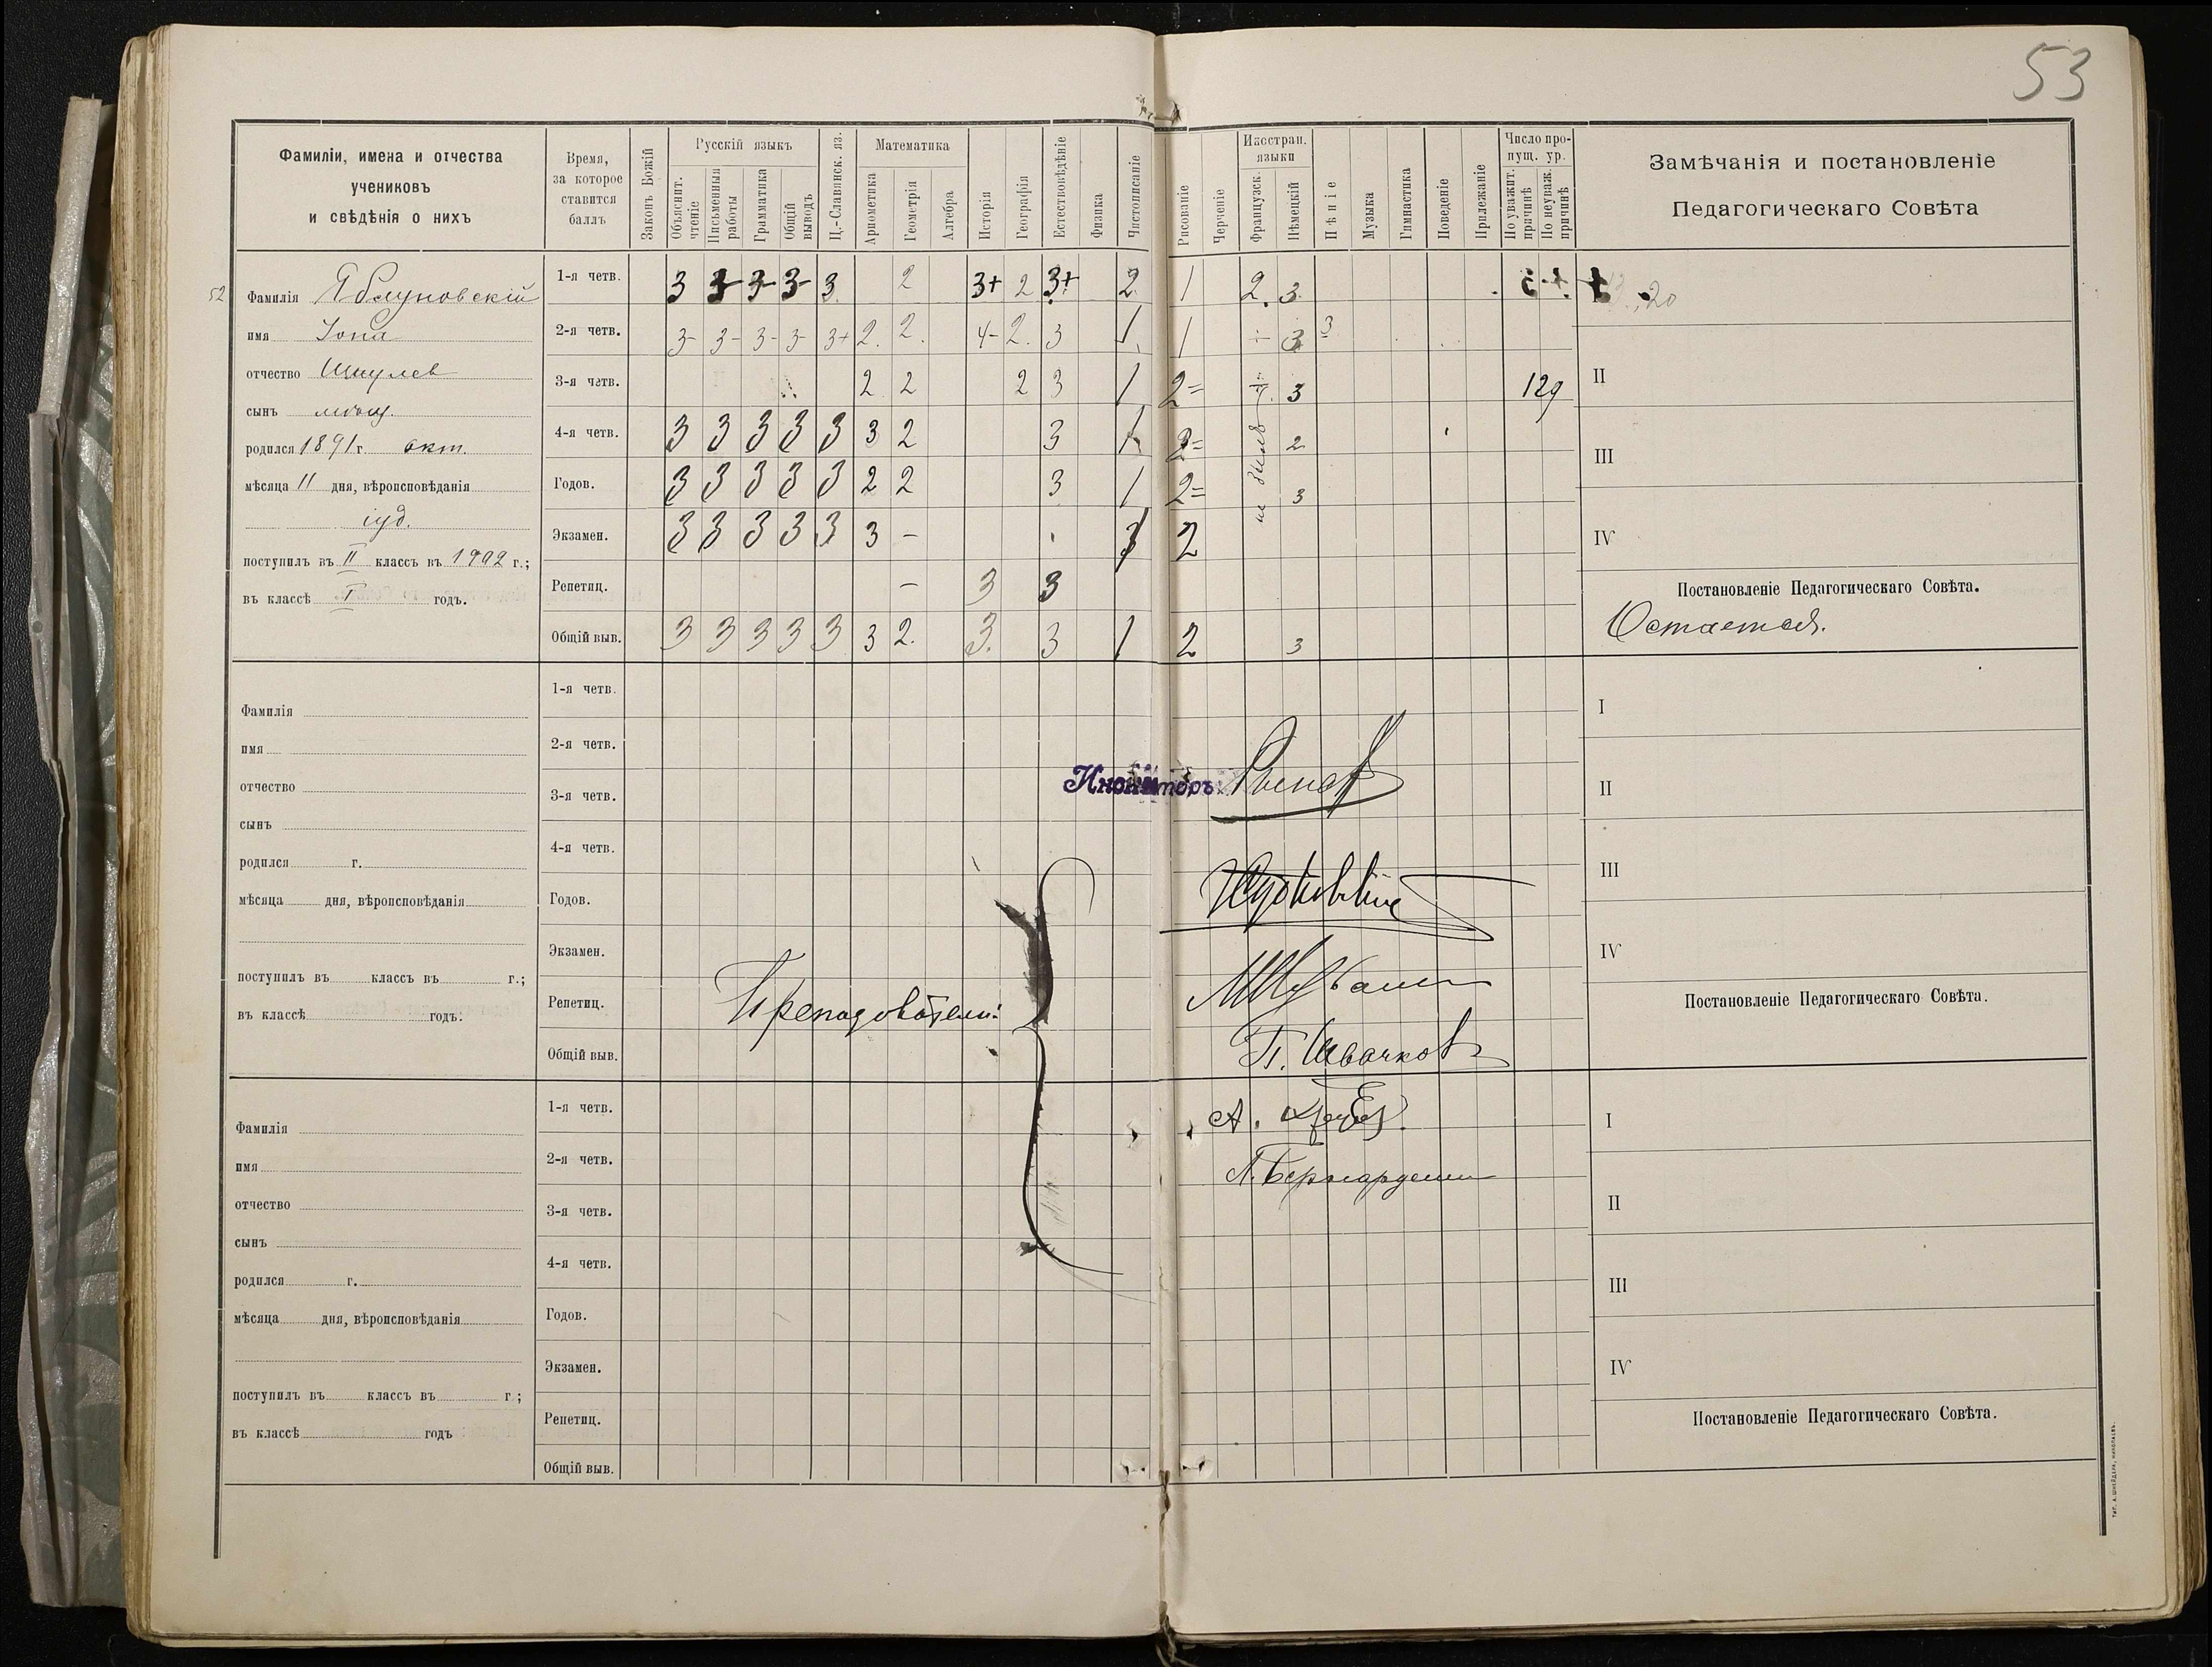 53
Фамиліи, имена и отчества
учениковъ
и свѣдѣнія о нихъ
Время,
за которое
ставится
баллъ
Законъ Божій
Русскій языкъ
Объяснит. чтеніе
Письменныя работы
Грамматика
Общій выводъ
Ц.-Славянск. яз.
Математика
Ариѳметика
Геометрія
Алгебра
Исторія
Географія
Естествовѣдѣніе
Физика
Чистописаніе
Рисованіе
Черченіе
Иностран. языки
Французск.
Нѣмецкій
Пѣніе
Музыка
Гимнастика
Поведеніе
Прилежаніе
Число пропущ. ур.
По уважит. причинѣ
По неуваж. причинѣ
Замѣчанія и постановленіе
Педагогическаго Совѣта
52
Фамилія Яблуновскій
имя Іона
отчество Шмулев
сынъ мѣщ.
родился 1891 г. окт.
мѣсяца 11 дня, вѣроисповѣданія
іуд.
поступилъ въ II классъ въ 1902 г.;
въ классѣ I годъ.
1-я четв. 3 3- 3- 3- 3. 2 3+ 2 3+ 2 1 2. 3.
2-я четв. 3- 3- 3- 3- 3+ 2. 2. 4- 2. 3 1 1 ÷ 3 3
3-я четв. 2 2 2 3 1 2= 3 129
4-я четв. 3 3 3 3 3 3 2 3 1 2= 2
Годов. 3 3 3 3 3 2 2 3 1 2= 3
Экзамен. 3 3 3 3 3 3 - 3 2
Репетиц. - 3 3
Общій выв. 3 3 3 3 3 3 2. 3. 3 1 2 3
II
III
IV
Постановленіе Педагогическаго Совѣта.
Остается.
Фамилія
имя
отчество
сынъ
родился г.
мѣсяца дня, вѣроисповѣданія
поступилъ въ классъ въ г.;
въ классѣ годъ.
1-я четв.
2-я четв.
3-я четв.
4-я четв.
Годов.
Экзамен.
Репетиц.
Общій выв.
Преподаватели:
П. Швачков
А.
I
II
III
IV
Постановленіе Педагогическаго Совѣта.
Фамилія
имя
отчество
сынъ
родился г.
мѣсяца дня, вѣроисповѣданія
поступилъ въ классъ въ г.;
въ классѣ годъ
1-я четв.
2-я четв.
3-я четв.
4-я четв.
Годов.
Экзамен.
Репетиц.
Общій выв.
I
II
III
IV
Постановленіе Педагогическаго Совѣта.
ТИП. А. ШНЕЙДЕРА, НИКОЛАЕВЪ.